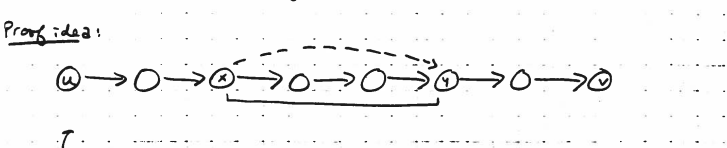 Proof idea:
u x y v